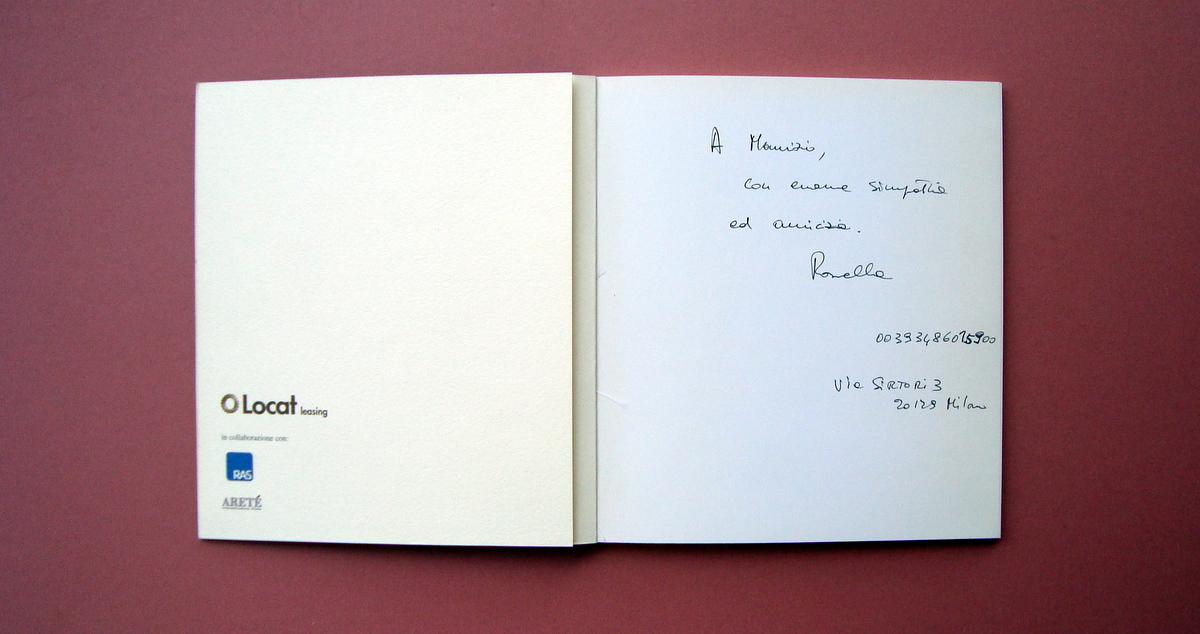 Locat leasing
in collaborazione con:
RAS
ARETÉ
A Maurizio,
con enorme simpatia
ed amicizia.
Ronella
00393486015900
Via SIRTORI 3
20129 Milano